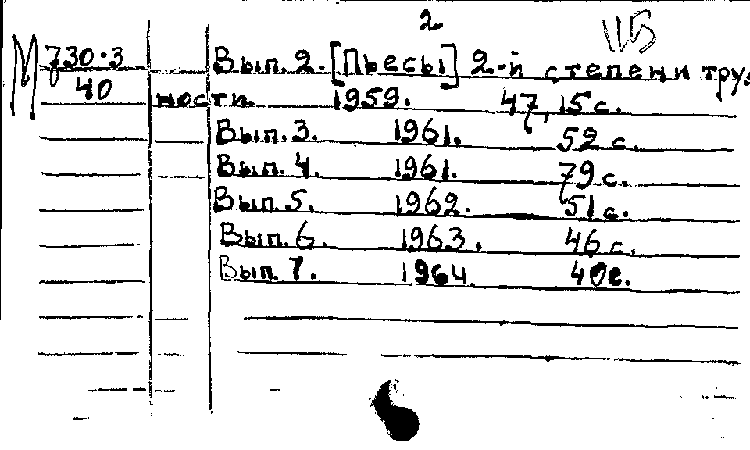 2.
М 730-3 Вып. 2. [Пьесы] 2-й степени труд
40 ности. 1959. 47, 15 с.
Вып. 3. 1961. 52 с.
Вып. 4. 1961. 79 с.
Вып. 5. 1962. 51 с.
Вып. 6. 1963. 46 с.
Вып. 7. 1964. 40 с.